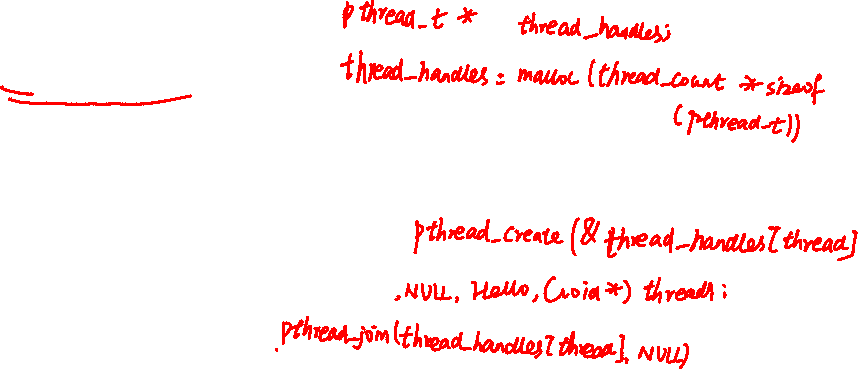 pthread_t * thread_handles;
thread_handles = malloc (thread_count * sizeof
(pthread_t))
pthread_create (& thread_handles[thread]
, NULL, Hello, (void *) thread);
pthread_join(thread_handles[thread], NULL)